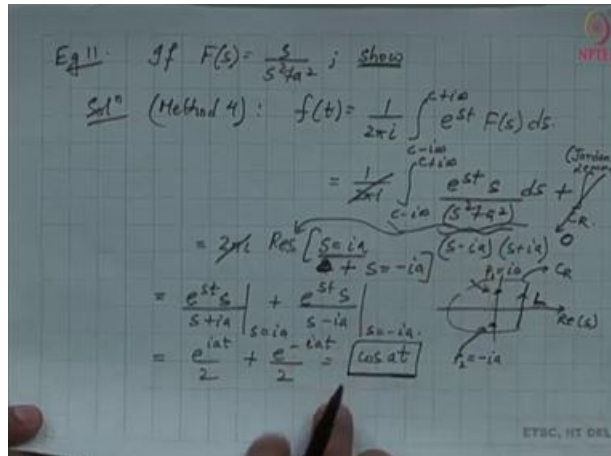 Eg 11. If F(s) = s/(s²+a²) ; show
Solⁿ (Method 4) : f(t) = 1/(2πi) ∫_{c-i∞}^{c+i∞} e^{st} F(s) ds.
= 1/(2πi) ∫_{c-i∞}^{c+i∞} e^{st} s/(s²+a²) ds + ∫_{C_R} (Jordan Lemma) 0
(s-ia) (s+ia)
= 2πi Res [s=ia + s=-ia]
= e^{st} s/(s+ia) |_{s=ia} + e^{st} s/(s-ia) |_{s=-ia}.
= e^{iat}/2 + e^{-iat}/2 = cos at
P₁=ia C_R
L
Re(s)
P₂=-ia
NPTEL
ETSC, IIT DEL